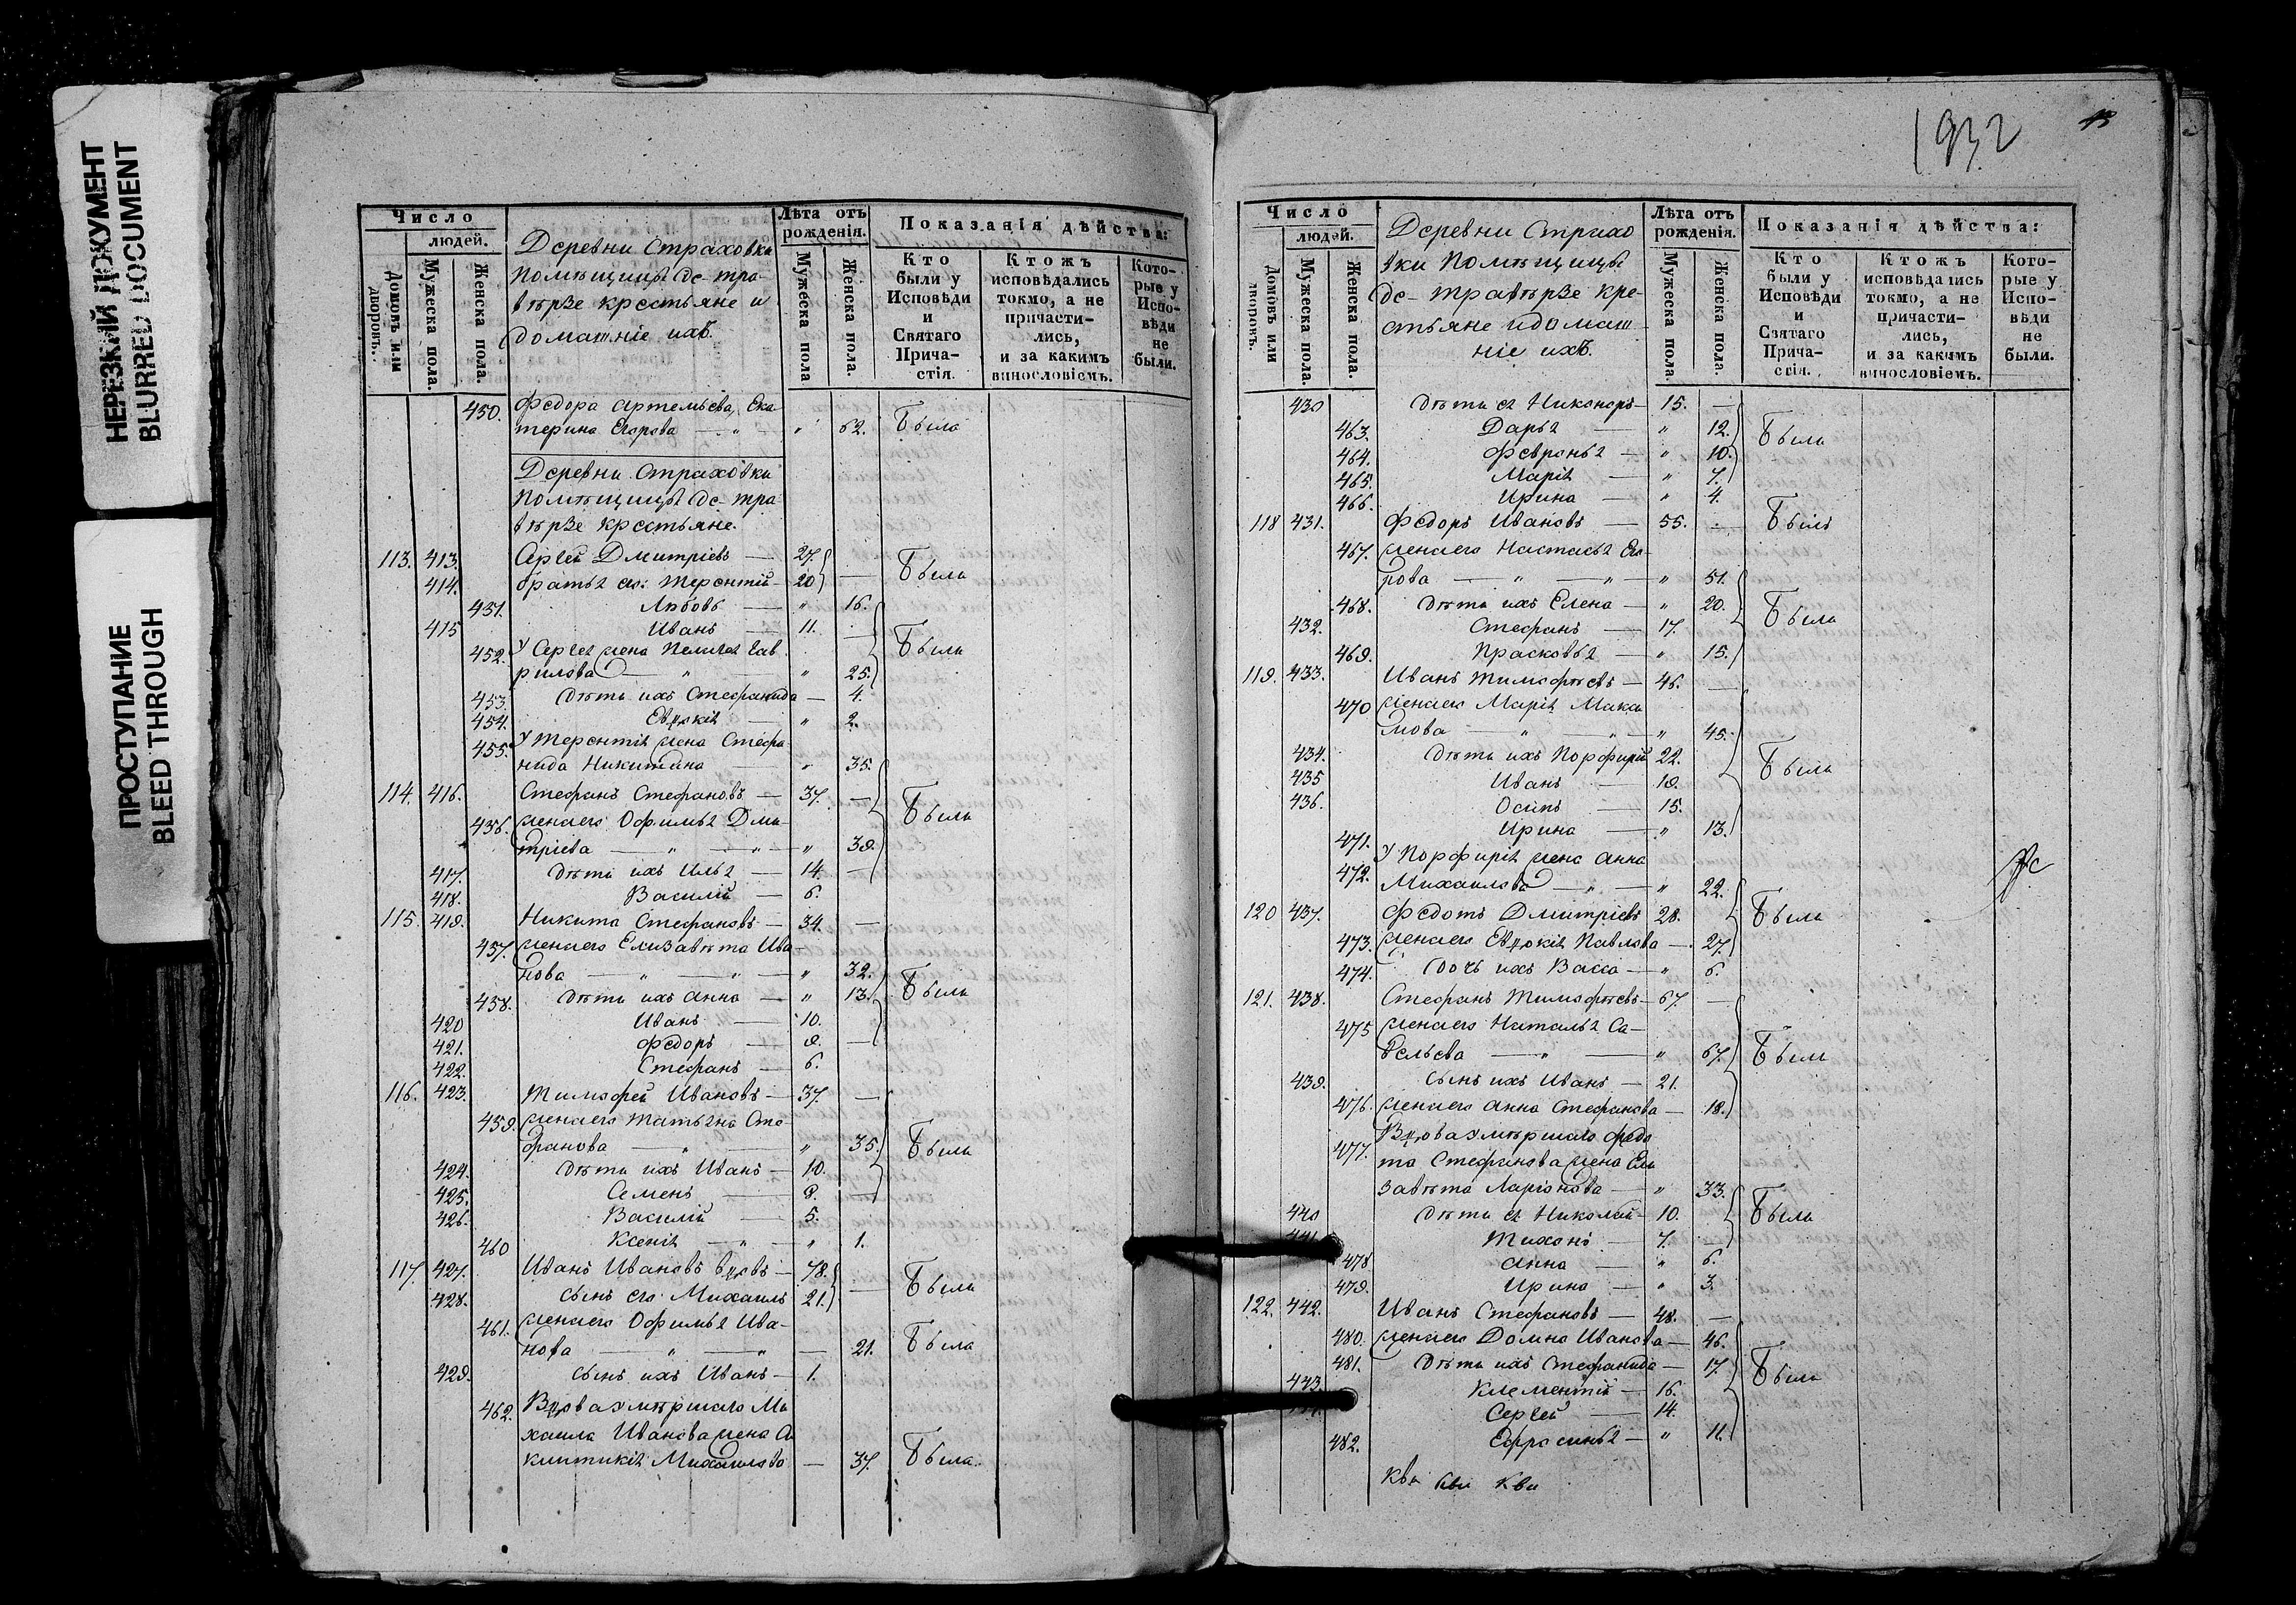 НЕРЕЗКИЙ ДОКУМЕНТ
BLURRED DOCUMENT
ПРОСТУПАНИЕ
BLEED THROUGH
Число
людей.
Домовъ или дворовъ.
Мужеска пола.
Женска пола.
Деревни Страховки
Помѣщицы де-тра-
вѣрзе крестьяне и
домашніе ихъ.
Лѣта отъ рожденія.
Мужеска пола
Женска пола.
Показанія дѣйства:
Кто были у Исповѣди и Святаго Прича-стія.
Ктожъ исповѣдались токмо, а не причасти-лись, и за какимъ винословіемъ.
Кото-рые у Испо-вѣди не были.
450. Федора Артемьева, Ека-
терина Егорова — " — " 62. Была
Деревни Страховки
Помѣщицы де-тра
вѣрзе крестьяне.
113. 413. Сергей Дмитріевъ — 27.
414. братья его: Терентій — 20 — Были
451. Любовь — " 16.
415 Иванъ — 11. —
452. У Сергея жена Пелагея Гав Были
рилова — " " 25.
453. Дѣти ихъ Стефанида — 4.
454. Евдокія — " 2.
455. У Терентія жена Стефа
нида Никитина — " 35.
114. 416. Стефанъ Стефановъ — 37. —
456. жена его Офимья Дми- Были
тріева — " — " — " 39.
417. Дѣти ихъ Илья — 14. —
418. Василій — 6.
115. 419. Никита Стефановъ — 34. —
457. жена его Елизавѣта Ива-
нова — " — " — " 32.
458. Дѣти ихъ Анна — " 13. Были
420 Иванъ — 10.
421. Федоръ — 9. —
422. Стефанъ — 6.
116. 423. Тимофей Ивановъ — 37. —
459. жена его Татьяна Сте-
фанова — " — " 35. Были
424. Дѣти ихъ Иванъ — 10.
425. Семенъ — 8. —
426. Василій — 5.
460 Ксенія — " — " 1.
117. 427. Иванъ Ивановъ вдовъ — 78.
428. Сынъ его Михаилъ 21. — Были
461. жена его Офимья Ива-
нова — " — " — 21. Была
429. Сынъ ихъ Иванъ — 1.
462. Вдова умѣршаго Ми
хаила Иванова жена
Михайлова — 37. Была.
1932
Число
людей.
Домовъ или дворовъ.
Мужеска пола.
Женска пола.
Деревни Страхо
вки Помѣщицы
де-травѣрзе кре-
стьяне и домаш-
ніе ихъ.
Лѣта отъ рожденія.
Мужеска пола.
Женска пола.
Показанія дѣйства:
Кто были у Исповѣди и Святаго Прича-стія.
Ктожъ исповѣдались токмо, а не причасти-лись, и за какимъ винословіемъ.
Кото-рые у Испо-вѣди не были.
430 Дѣти ея Никаноръ — 15. —
463. Дарья — " 12. Были
464. Февронья — " 10.
465. Марія — " 7.
466. Ирина — " 4.
118 431. Федоръ Ивановъ — 55. — Былъ
467. жена его Настасья Его-
рова — " — " — " 51.
468. Дѣти ихъ Елена — " 20. Были
432. Стефанъ — 17.
469. Прасковья — " 15.
119. 433. Иванъ Тимофѣевъ — 46. —
470 жена его Марія Мака
мова — " — " — " 45.
434. Дѣти ихъ Порфирій 22. Были
435 Иванъ — 19.
436. Осипъ — 15.
471. Ирина — " 13.
472. У Порфирія жена Анна
Михаилова — " — " 22.
120 437. Федотъ Дмитріевъ 28. Были
473. жена его Евдокія Павлова — 27.
474. Дочь ихъ Васса — " 6.
121. 438. Стефанъ Тимофѣевъ — 67. —
475 жена его Наталья Са-
вельева — " — " 67. Были
439. Сынъ ихъ Иванъ — 21.
476. жена его Анна Стефанова — 18.
477. Вдова умѣршаго Федо
та Стефанова жена Ели
завѣта Ларіонова — " 33.
440 Дѣти ея Николай — 10. Были
441. Тихонъ — 7. —
478 Анна — " 6.
479. Ирина — " 3.
122. 442. Иванъ Стефановъ — 48. —
480. жена его Домна Иванова — 46.
481. Дѣти ихъ Стефанида — 17. Были
443. Клементій — 16.
Сергей — 14.
482. Ефросинья — " 11.